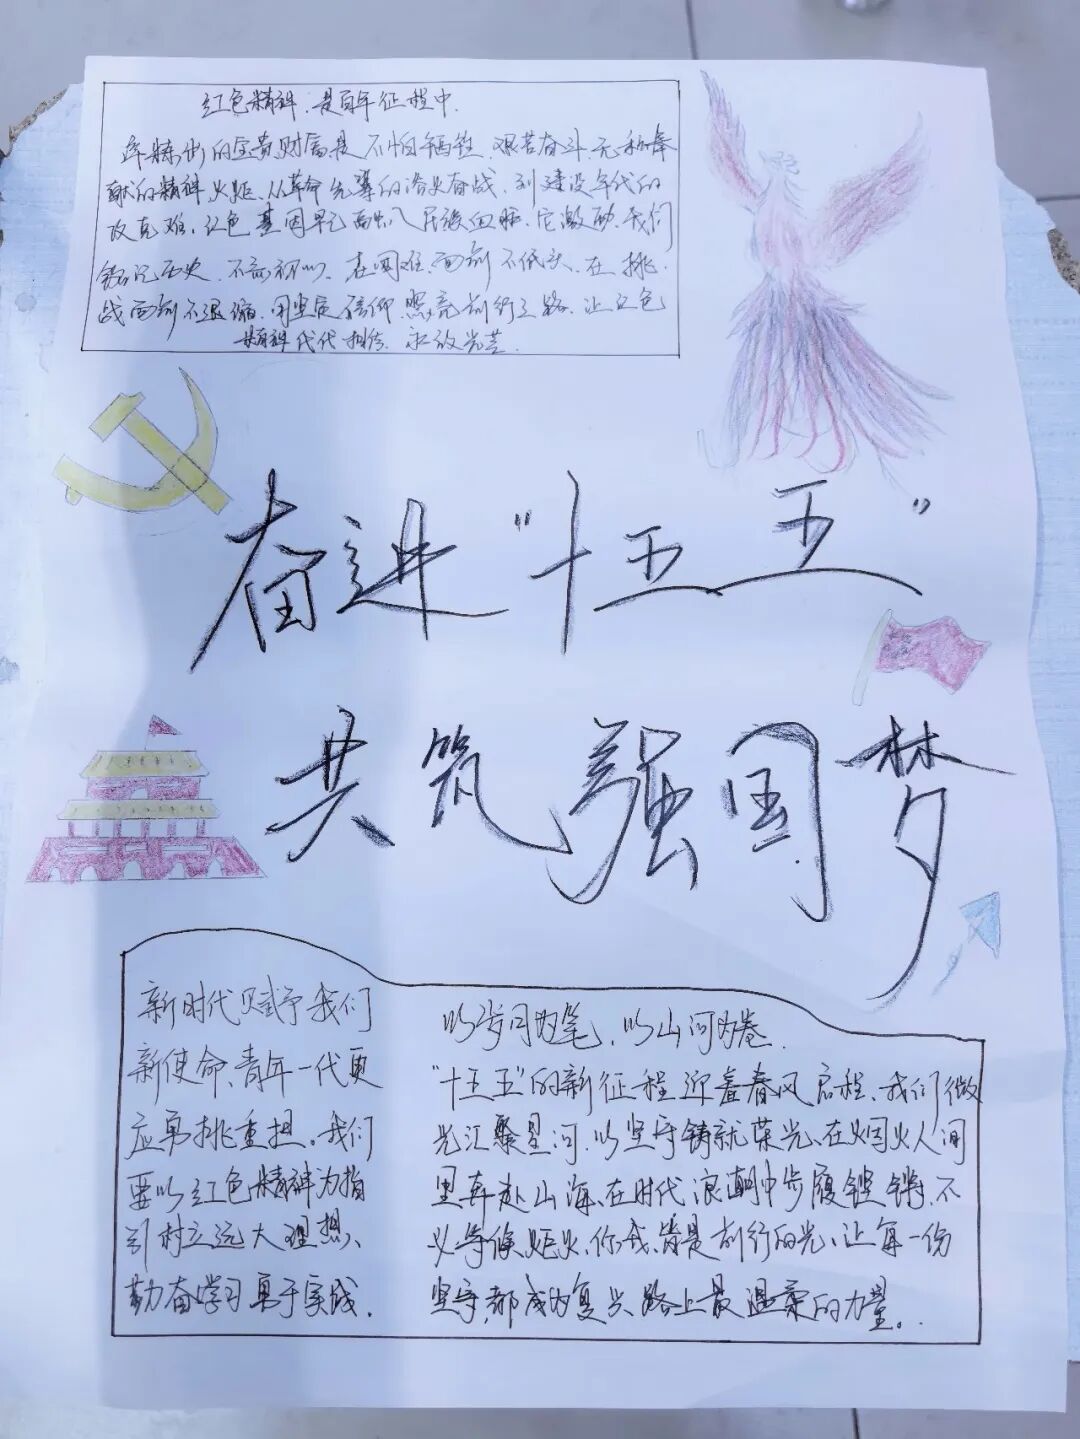 红色精神,是百年征程中
淬炼出的宝贵财富是不怕牺牲、艰苦奋斗、无私奉
献的精神火炬、从革命先辈的浴火奋战、到建设年代的
攻克难、红色基因早已融入民族血脉、它激励我们
铭记历史、不忘初心、在困难面前不低头、在挑
战面前不退缩、用坚定信仰照亮前行之路、让红色
精神代代相传、永放光芒.
奋进“十五五”
共筑强国梦
新时代赋予我们
新使命、青年一代更
应勇挑重担。我们
要以红色精神为指
引树立远大理想、
勤奋学习勇于实践.
以岁月为笔,以山河为卷.
“十五五”的新征程迎着春风启程、我们微
光汇聚星河、以坚守铸就荣光、在烟火人间
里奔赴山海、在时代浪潮中步履铿锵、不
必等候炬火、你我皆是前行的光、让每一份
坚守,都成为复兴路上最温柔的力量。